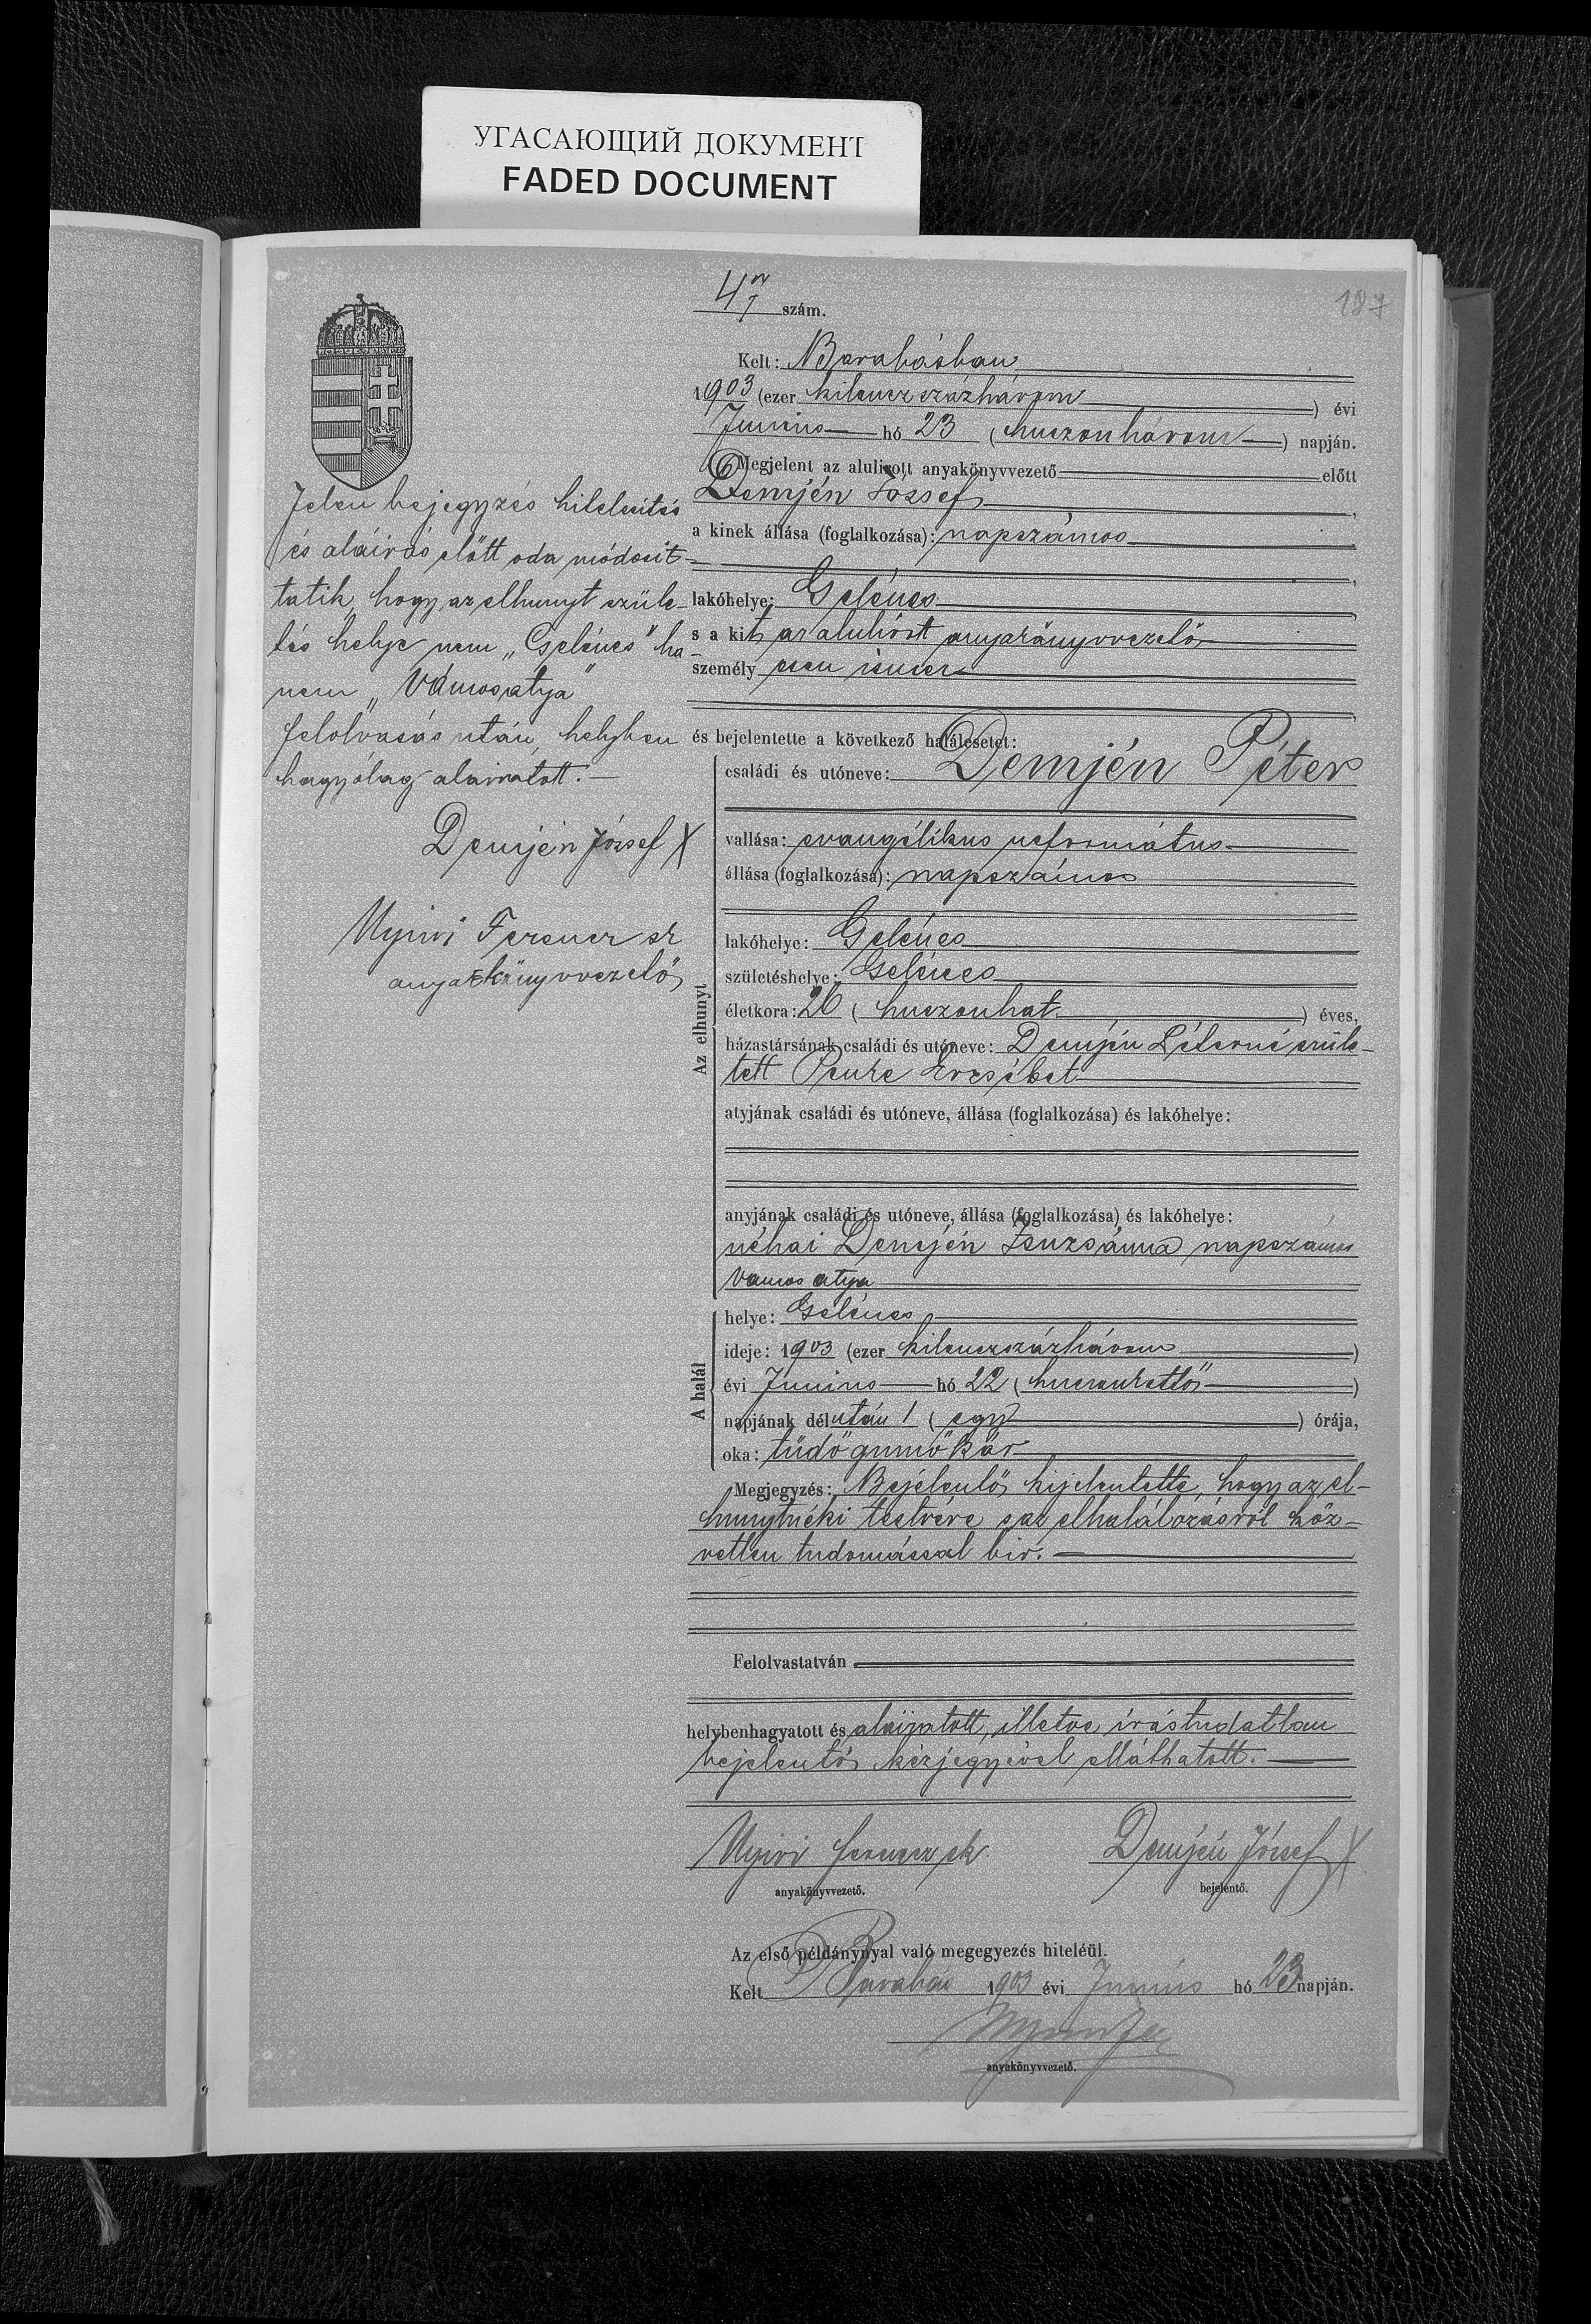 УГАСАЮЩИЙ ДОКУМЕНТ
FADED DOCUMENT
187
47 szám.
Kelt: Barabásban
1903 (ezer kilenczszázhárom) évi
Junius hó 23 (huszonhárom) napján.
Megjelent az alulirott anyakönyvvezető előtt
Demjén József,
a kinek állása (foglalkozása): napszámos
lakóhelye: Gelénes
s a kit az alulirt anyakönyvvezető
személyesen ismer
és bejelentette a következő halálesetet:
Az elhunyt
családi és utóneve: Demjén Péter
vallása: evangélikus református
állása (foglalkozása): napszámos
lakóhelye: Gelénes
születéshelye: Gelénes
életkora: 26 (huszonhat) éves,
házastársának családi és utóneve: Demjén Péterné szüle-
tett Erzsébet
atyjának családi és utóneve, állása (foglalkozása) és lakóhelye:
anyjának családi és utóneve, állása (foglalkozása) és lakóhelye:
néhai Demjén Zsuzsánna napszámos
Vámos atya
A halál
helye: Gelénes
ideje: 1903 (ezer kilenczszázhárom)
évi Junius hó 22 (huszonkettő)
napjának délután 1 (egy) órája,
oka: tüdőgümőkór
Megjegyzés: Bejelentő kijelentette, hogy az el-
hunytnéki testvére s az elhalálozásról köz-
vetlen tudomással bir.
Felolvastatván
helybenhagyatott és aláiratott, illetve irástudatlan
bejelentő kézjegyével elláthatott.
Nyiri Ferencz sk.
Demjén József X
anyakönyvvezető.
bejelentő.
Az első példánynyal való megegyezés hiteléül.
Kelt Barabás 1903 évi Junius hó 23 napján.
anyakönyvvezető.
Jelen bejegyzés hitelesités
és aláirás előtt oda módosit-
tatik, hogy az elhunyt szüle-
tés helye nem „Gelénes" ha-
nem „Vámosatya"
felolvasás után, helyben
hagyólag aláiratott.
Demjén József X
Nyiri Ferencz sk
anyakönyvvezető